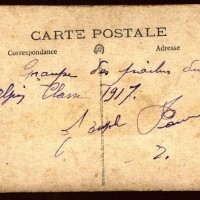 CARTE POSTALE
Correspondance Adresse
Groupe des poilus du
Alpin Classe 1917.